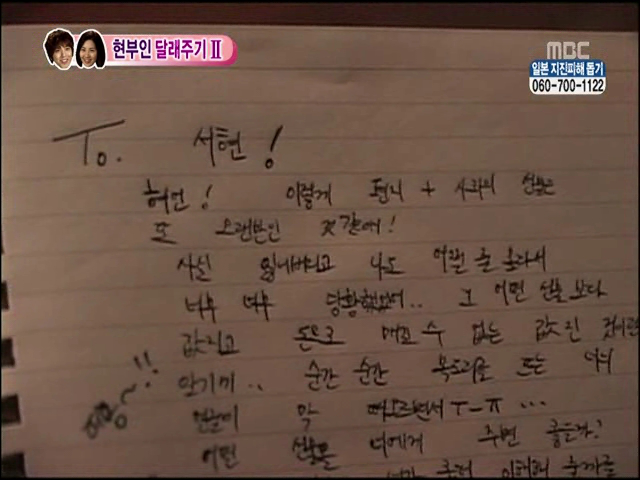 현부인 달래주기 II
MBC
일본 지진피해 돕기
060-700-1122
To. 서현!
혀언! 이렇게 편지 + 사과의 선물은
또 오랜만인 것 같애!
사실 잃어버리고 나도 어쩔 줄 몰라서
너무 너무 당황했었어.. 그 어떤 선물 보다
값지고 돈으로 매길 수 없는 값진
알기에.. 순간 순간 목도리를 뜨는 너의
얼굴이 막 떠오르면서 ㅜ-ㅠ ...
어떤 선물을 너에게 주면 좋을까?